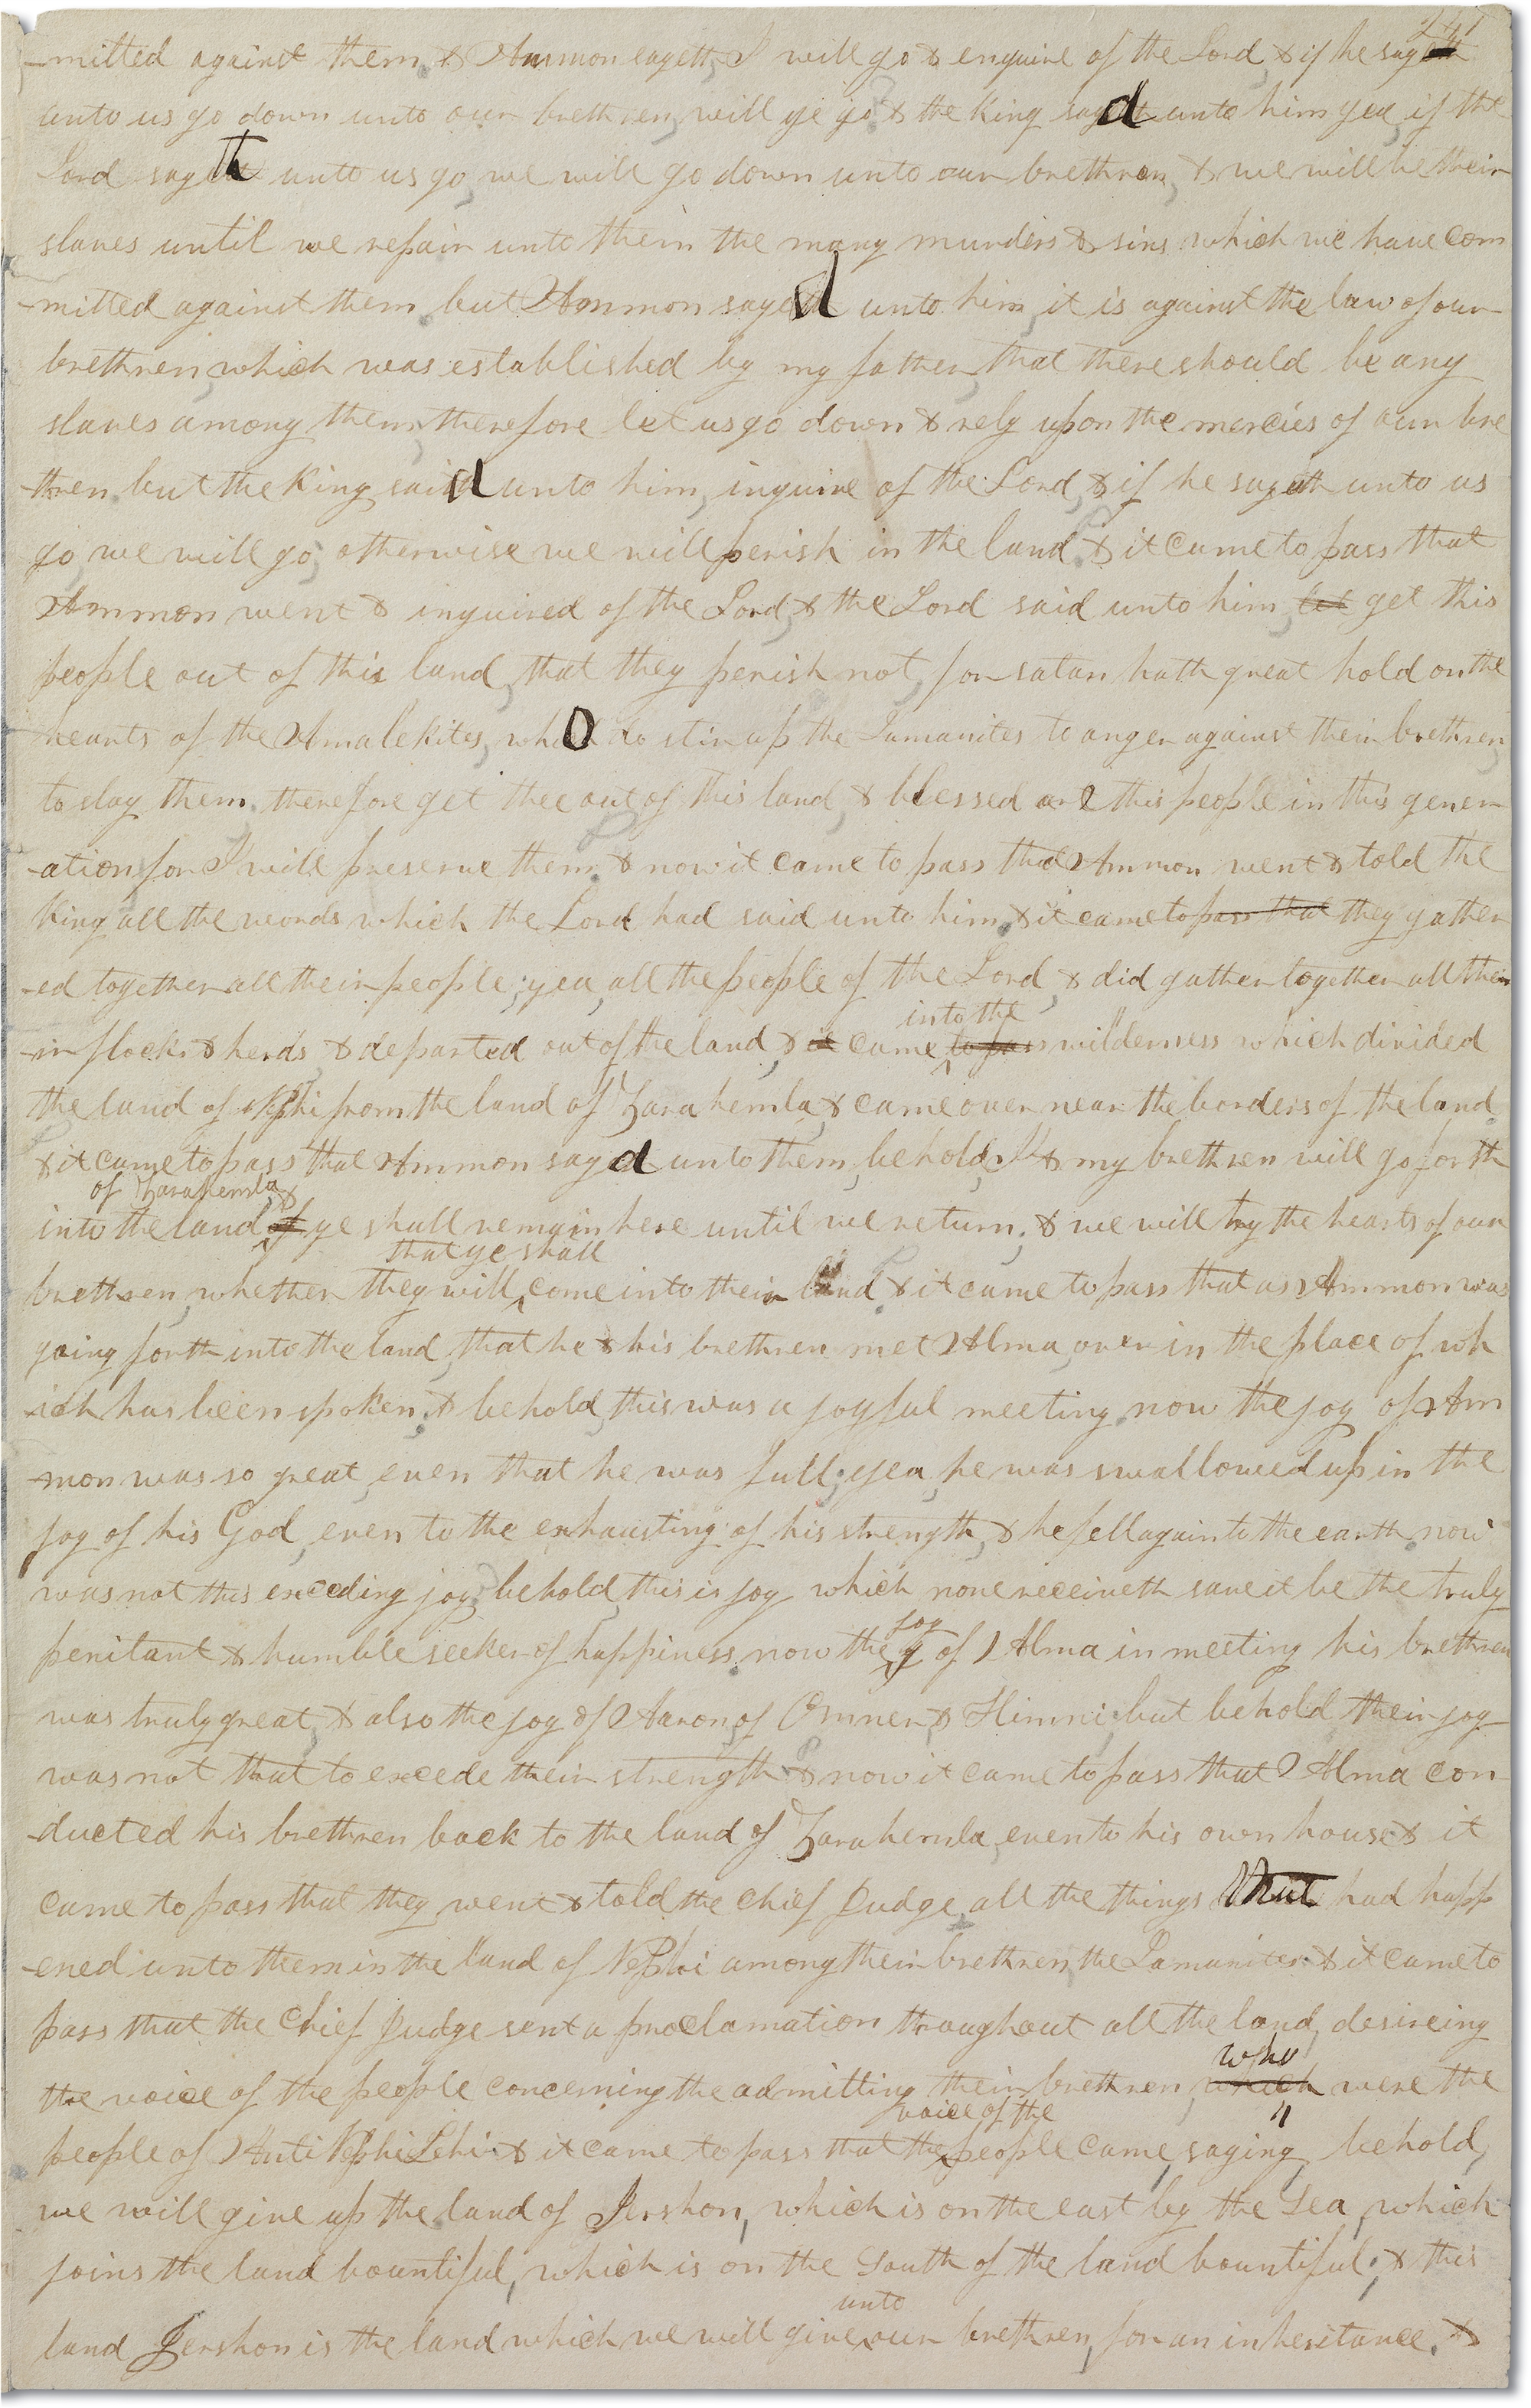 241
-mitted against them & Ammon sayeth, I will go & enquire of the Lord, & if he sayeth
unto us go down unto our brethren, will ye go & the King sayd unto him yea, if the
Lord sayth unto us go, we will go down unto our brethren, & we will be their
slaves until we repair unto them the many murders & sins which we have com
-mitted against them, but Ammon sayed unto him, it is against the law of our
brethren, which was established by my father, that there should be any
slaves among them, therefore let us go down & rely upon the mercies of our bre
-thren. but the King said unto him, inquire of the Lord, & if he sayeth unto us
go, we will go; otherwise we will perish in the land, & it came to pass that
Ammon went & inquired of the Lord, & the Lord said unto him, let get this
people out of this land, that they perish not, for satan hath great hold on the
hearts of the Amalekites, who do stir up the Lamanites to anger against their brethren,
to slay them, therefore get thee out of this land, & blessed are this people in this gener
-ation, for I will preserve them. & now it came to pass that Ammon went & told the
King all the words which the Lord had said unto him, & it came to pass that they gather
-ed together all their people; yea, all the people of the Lord, & did gather together all their
-ir flocks & herds, & departed out of the land, & it came to pass wilderness which divided
into the
the land of Nephi from the land of Zarahemla, & came over near the borders of the land.
& it came to pass that Ammon sayd unto them, behold, I & my brethren will go forth
of Zarahemla, &
into the land if ye shall remain here until we return; & we will try the hearts of our
that ye shall
brethren, whether they will come into their land & it came to pass that as Ammon was
going forth into the land, that he & his brethren met Alma, over in the place of wh
-ich has been spoken, & behold, this was a joyful meeting. now the joy of Am
-mon was so great, even that he was full; yea, he was swallowed up in the
joy of his God, even to the exhausting of his strength, & he fell again to the earth. now
was not this exceding joy, behold, this is joy which none receiveth save it be the truly
penitant & humble seeker of happiness. now the y of Alma in meeting his brethren
joy
was truly great, & also the joy of Aaron, of Omner, & Himni; but behold their joy
was not that to excede their strength & now it came to pass that Alma con
-ducted his brethren back to the land of Zarahemla, even to his own house & it
came to pass that they went & told the Chief Judge all the things that had happ
-ened unto them in the land of Nephi among their brethren, the Lamanites. & it came to
pass that the Chief Judge sent a proclamation throughout all the land, desireing
the voice of the people concerning the admitting their brethren, which were the
who
people of Anti Nephi Lehi & it came to pass that the people came, saying, behold,
voice of the
we will give up the land of Jershon, which is on the east by the Sea, which
joins the land bountiful, which is on the South of the land bountiful; & this
land Jershon is the land which we will give our brethren, for an inheritance. &
unto